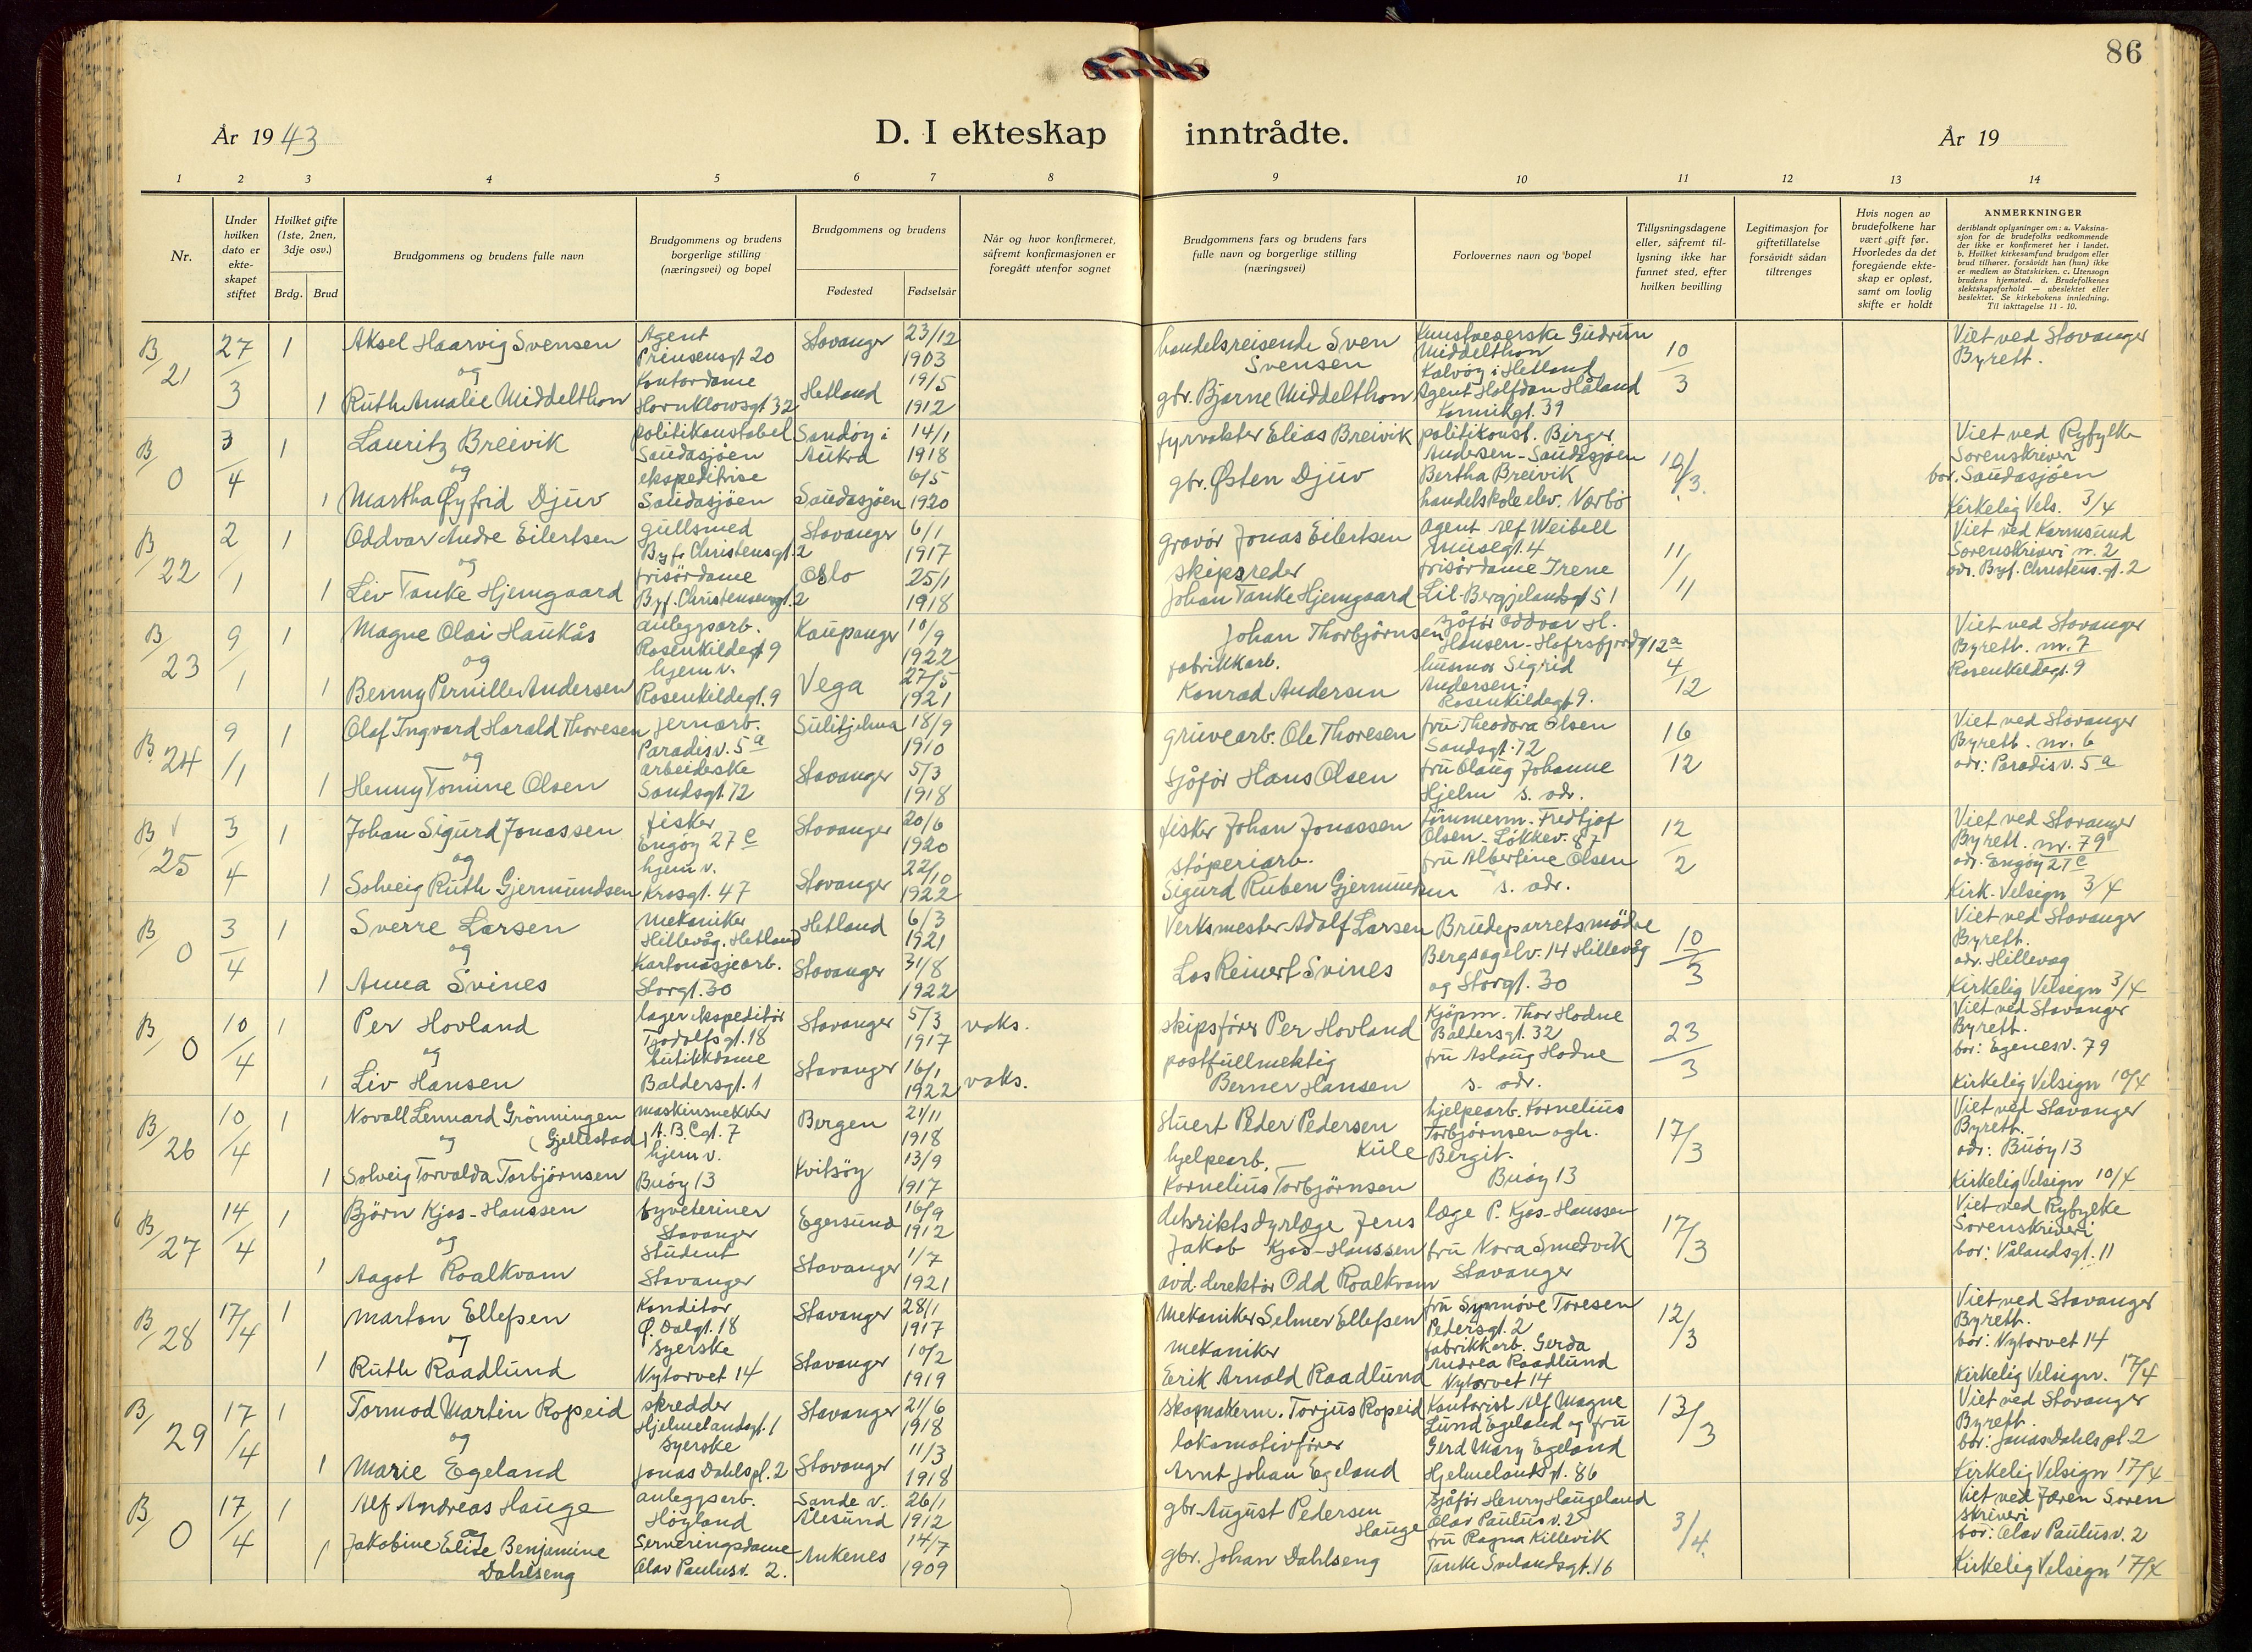 86
År 1943
D. I ekteskap inntrådte.
År 19
1 2 3 4 5 6 7 8 9 10 11 12 13 14
Nr.
Under hvilken dato er ekteskapet stiftet
Hvilket gifte (1ste, 2nen, 3dje osv.)
Brdg. Brud
Brudgommens og brudens fulle navn
Brudgommens og brudens borgerlige stilling (næringsvei) og bopel
Brudgommens og brudens
Fødested Fødselsår
Når og hvor konfirmeret, såfremt konfirmasjonen er foregått utenfor sognet
Brudgommens fars og brudens fars fulle navn og borgerlige stilling (næringsvei)
Forlovernes navn og bopel
Tillysningsdagene eller, såfremt tillysning ikke har funnet sted, efter hvilken bevilling
Legitimasjon for giftetillatelse forsåvidt sådan tiltrenges
Hvis nogen av brudefolkene har vært gift før. Hvorledes da det foregående ekteskap er opløst, samt om lovlig skifte er holdt
ANMERKNINGER
deriblandt oplysninger om: a. Vaksinasjon for de brudefolks vedkommende der ikke er konfirmeret her i landet. b. Hvilket kirkesamfund brudgom eller brud tilhører, forsåvidt han (hun) ikke er medlem av Statskirken. c. Utensogn brudens hjemsted. d. Brudefolkenes slektskapsforhold — ubeslektet eller beslektet. Se kirkebokens innledning. Til iakttagelse 11 - 10.
B/21 27/3 1 Aksel Haarvig Svensen Agent Prinsensgt 20 Stavanger 23/12 1903 handelsreisende Sven Svensen Gudrun Middelthon Kalvøy i Hetland 10/3 Viet ved Stavanger Byrett.
og
1 Ruth Amalie Middelthon Kontordame Hornklowsgt 32 Hetland 19/5 1912 gbr. Bjarne Middelthon Agent Halfdan Håland Kannikgt. 39
B/0 3/4 1 Lauritz Breivik politikonstabel Saudasjøen Sandøy i Aukra 14/1 1918 fyrvokter Elias Breivik politikonst. Birger Andersen - Saudasjøen Viet ved Ryfylke Sorenskriveri bor. Saudasjøen
og
1 Martha Øyfrid Djuv ekspeditrise Saudasjøen Saudasjøen 6/5 1920 gbr. Østen Djuv Bertha Breivik handelskole elev. Kirkelig Vels. 3/4
B/22 2/1 1 Oddvar Andre Eilertsen gullsmed Byf. Christensgt. 2 Stavanger 6/1 1917 gravør Jonas Eilertsen agent Alf Weibell Musegt. 4 11/11 Viet ved Karmsund Sorenskriveri nr. 2 adr. Byf. Christens. gt. 2
og
1 Liv Tanke Hjemgaard frisørdame Byf. Christensensgt. 2 Oslo 25/1 1918 skipsreder Johan Tanke Hjemgaard frisørdame Irene Lil - Bergjelandsgt 51
B/23 9/1 1 Magne Olai Haukås anleggsarb. Rosenkildegt 9 Kaupanger 10/9 1922 Johan Thorbjørnsen sjåfør Oddvar H. Hansen - Hafrsfjordgt 12a 4/12 Viet ved Stavanger Byrett. nr. 7 Rosenkildegt. 9
og
1 Benny Pernille Andersen hjemv. Rosenkildegt. 9 Vega 27/5 1921 fabrikkarb. Konrad Andersen husmor Sigrid Andersen: Rosenkildegt 9.
B. 24 9/1 1 Olaf Ingvard Harald Thoresen jernarb. Paradisv. 5a Sulitjelma 18/9 1910 gruvearb. Ole Thoresen fru Theodora Olsen Sandsgt. 72 16/12 Viet ved Stavanger Byrett. nr. 6 adr: Paradisv. 5a
og
1 Henny Tomine Olsen arbeideske Sandsgt. 72 Stavanger 5/3 1918 sjåfør Hans Olsen fru Olaug Johanne Hjelm s. adr.
B/25 3/4 1 Johan Sigurd Jonassen fisker Engøy 27c Stavanger 20/6 1920 fisker Johan Jonassen tømmerm. Fredtjof Olsen - Løkkev. 87 12/2 Viet ved Stavanger Byrett. nr. 79 adr. Engøy 27c
og
1 Solveig Ruth Gjermundsen hjemv. Krosgt. 47 Stavanger 22/10 1922 støperiarb. Sigurd Ruben Gjermundsen fru Albertine Olsen s. adr. Kirk. Velsign 3/4
B/0 3/4 1 Sverre Larsen mekaniker Hillevåg. Hetland Hetland 6/3 1921 Verksmester Adolf Larsen Brudeparrets mødre Bergsagelv. 14 Hillevåg 10/3 Viet ved Stavanger Byrett. adr. Hillevåg
og
1 Anna Svines Kartonasjearb. Storgt. 30 Stavanger 31/8 1922 Los Reinert Svines og Storgt. 30 Kirkelig Velsign 3/4
B/0 10/4 1 Per Hovland lagerekspeditør Tjodolfsgt. 18 Stavanger 5/3 1917 vaks. skipsfører Per Hovland Kjøpm. Thor Hodne Baldersgt. 32 23/3 Viet ved Stavanger Byrett. bor: Egenesv. 79
og
1 Liv Hansen butikkdame Baldersgt. 1 Stavanger 16/1 1922 vaks. postfullmektig Berner Hansen fru Aslaug Hodne s. adr. Kirkelig Velsign 10/4
B/26 10/4 1 Novall Lennard Grønningen (Gjellestad) maskinsnekker A.B.C gt. 7 Bergen 21/11 1918 Stuert Peder Pedersen hjelpearb. Kornelius Torbjørnsen ogh. 17/3 Viet ved Stavanger Byrett. adr: Buøy 13
og
1 Solveig Torvalda Torbjørnsen hjemv. Buøy 13 Kvitsøy 13/9 1917 hjelpearb. Kornelius Torbjørnsen Bergit. Buøy 13 Kirkelig Velsign 10/4
B/27 14/4 1 Bjørn Kjos-Hanssen byveterinær Stavanger Egersund 16/9 1912 distriktsdyrlæge Jens Jakob Kjos-Hanssen læge P. Kjos-Hanssen 17/3 Viet ved Ryfylke Sorenskriveri bor: Vålandsgt. 11
og
1 Aagot Roalkvam student Stavanger Stavanger 1/7 1921 avd. direktør Odd Roalkvam fru Nora Smedvik Stavanger
B/28 17/4 1 Marton Ellefsen Konditor Ø. Dalgt. 18 Stavanger 28/1 1917 Mekaniker Selmer Ellefsen fru Synnøve Toresen Pedersgt. 2 12/3 Viet ved Stavanger Byrett. bor: Nytorvet 14
og
1 Ruth Raadlund syerske Nytorvet 14 Stavanger 10/2 1919 mekaniker Erik Arnold Raadlund fabrikkarb. Gerda Andrea Raadlund Nytorvet 14 Kirkelig Velsign. 17/4
B/29 17/4 1 Tormod Martin Ropeid skredder Hjelmelandsgt. 1 Stavanger 21/6 1918 skomakerm. Torjus Ropeid Kontorist Alf Magne Lund Egeland og fru 13/3 Viet ved Stavanger Byrett. bor: Jonas Dahls pl. 2
og
1 Marie Egeland syerske Jonas Dahls pl. 2 Stavanger 11/3 1918 lokomotivfører Arnt Johan Egeland Gerd Mary Egeland Hjelmelandsgt. 86 Kirkelig Velsign 17/4
B/0 17/4 1 Alf Andreas Hauge anleggsarb. Høyland Sande v. Ålesund 26/1 1912 gbr. August Pedersen Hauge sjåfør Henry Haugeland Olav Paulus v. 2 3/4. Viet ved Jæren Soren skriveri bor: Olav Paulus v. 2
og
1 Jakobine Elise Benjamine Dahlseng Serveringsdame Olav Paulus v. 2. Ankenes 14/7 1909 gbr. Johan Dahlseng fru Ragna Killevik Tanke Svilandsgt. 16 Kirkelig Velsign 17/4